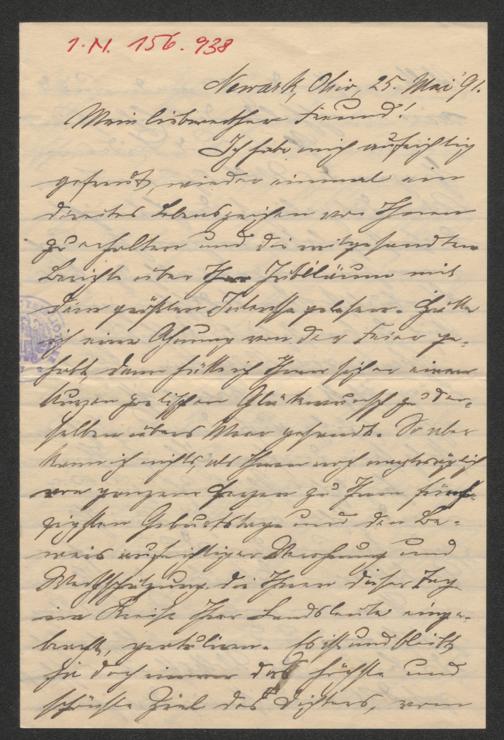 I.N. 156.938
Newark, Ohio, 25. Mai '91.
Mein lieberwerther Freund!
Ich habe mich aufrichtig
gefreut, wieder einmal ein
directes Lebenszeichen von Ihnen
zu erhalten und die mitgesandten
Berichte über Ihr Jubiläum mit
dem größten Interesse gelesen. Hätte
ich eine Ahnung von der Feier ge-
habt, dann hätte ich Ihnen sicher einen
kurzen poetischen Glückwunsch zu der-
selben übers Meer gesandt. So aber
kann ich nichts, als Ihnen noch nachträglich
von ganzem Herzen zu Ihrem fünf-
zigsten Geburtstage und den Be-
weis aufrichtiger Verehrung und
Werthschätzung, die Ihnen dieser Tag
im Kreise Ihrer Landsleute einge-
bracht, gratuliren. Es ist und bleibt
ja doch immer das höchste und
schönste Ziel des Dichters, vom